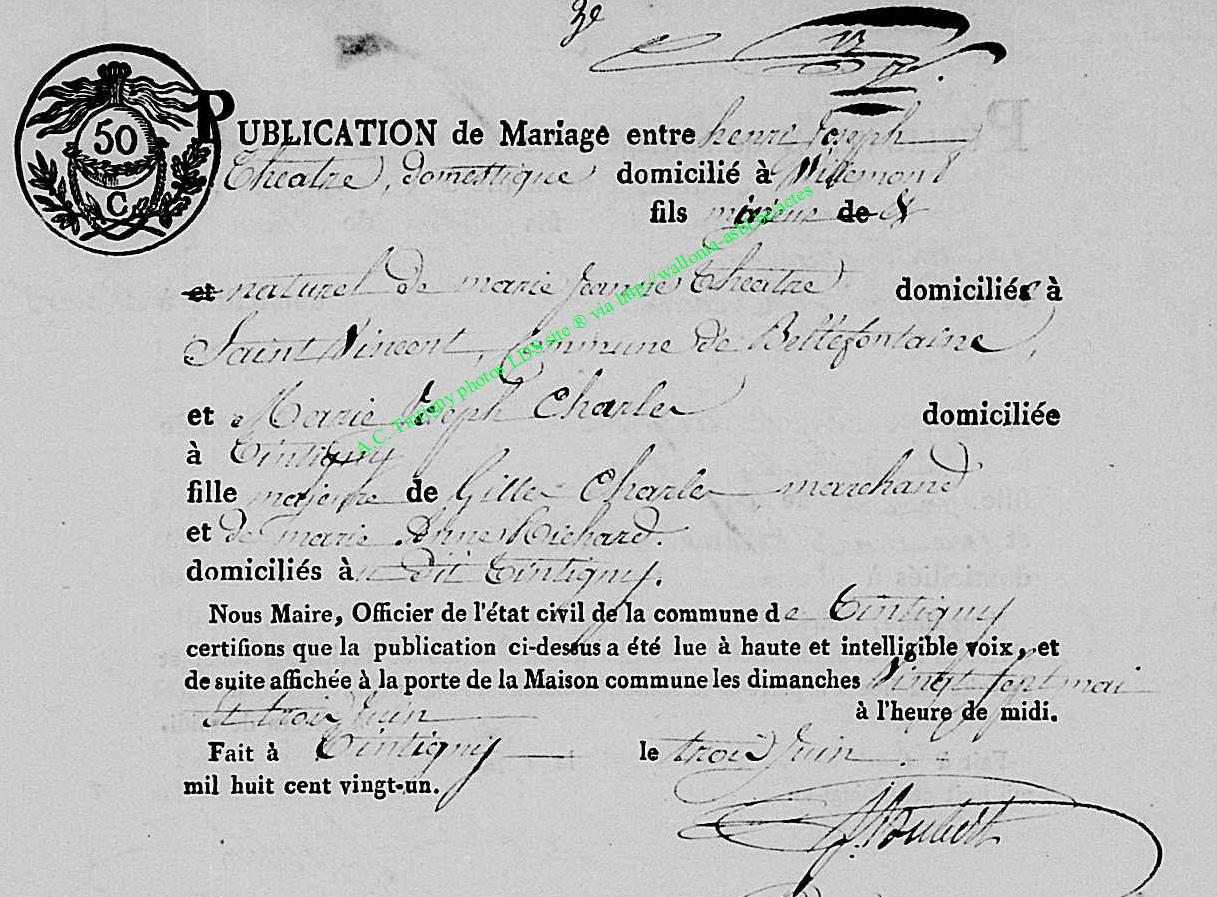 50
C
PUBLICATION de Mariage entre henri Joseph
Théatre, domestique domicilié à Villemont
fils mineur de &
et naturel de marie Jeanne Théatre domiciliée à
Saint Vincent, Commune de Bellefontaine,
et Marie Joseph Charles domiciliée
à Tintigny
fille majeure de Gille Charles marchand
et de marie Anne Richard.
domiciliés à u dit Tintigny.
Nous Maire, Officier de l'état civil de la commune de Tintigny
certifions que la publication ci-dessus a été lue à haute et intelligible voix, et
de suite affichée à la porte de la Maison commune les dimanches Vingt sept mai
et trois Juin à l'heure de midi.
Fait à Tintigny le trois Juin
mil huit cent vingt-un.
A.C. Tintigny photos LDS site ® via http://wallonia-asbl.be/actes